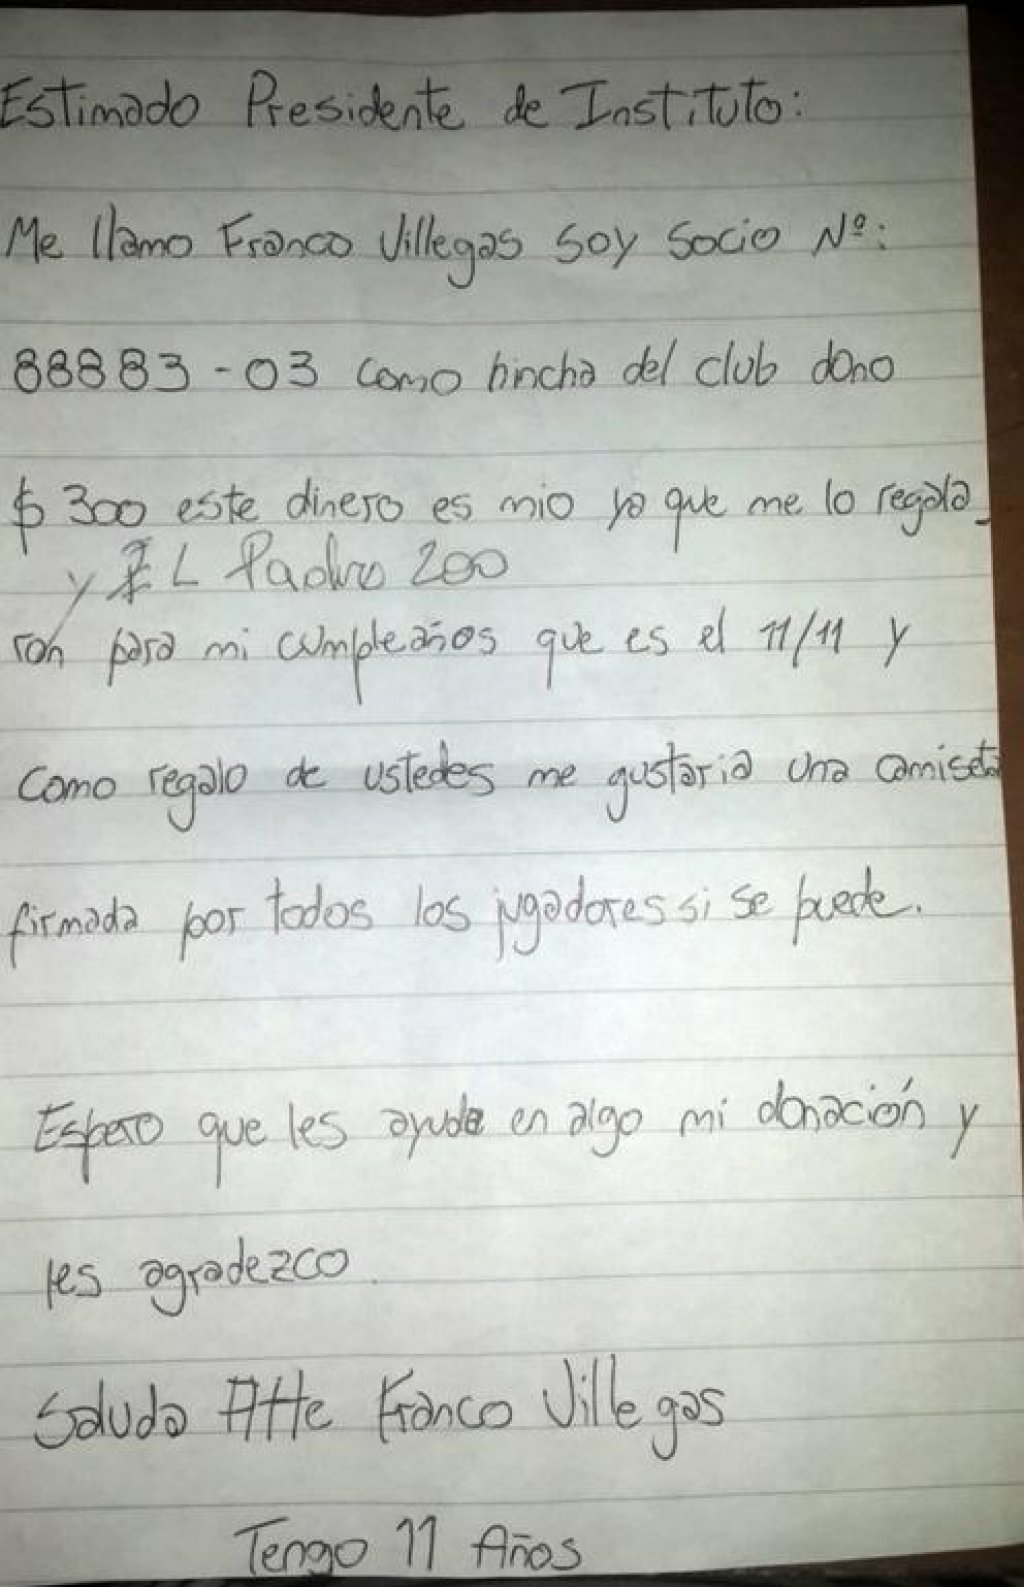 Estimado Presidente de Instituto:
Me llamo Franco Villegas soy socio Nº:
88883-03 como hincha del club dono
$300 este dinero es mio ya que me lo regala_
y EL Padre 200
ron para mi cumpleaños que es el 11/11 y
como regalo de ustedes me gustaria una camiseta
firmada por todos los jugadores si se puede.
Espero que les ayude en algo mi donación y
les agradezco.
Saluda Atte Franco Villegas
Tengo 11 Años